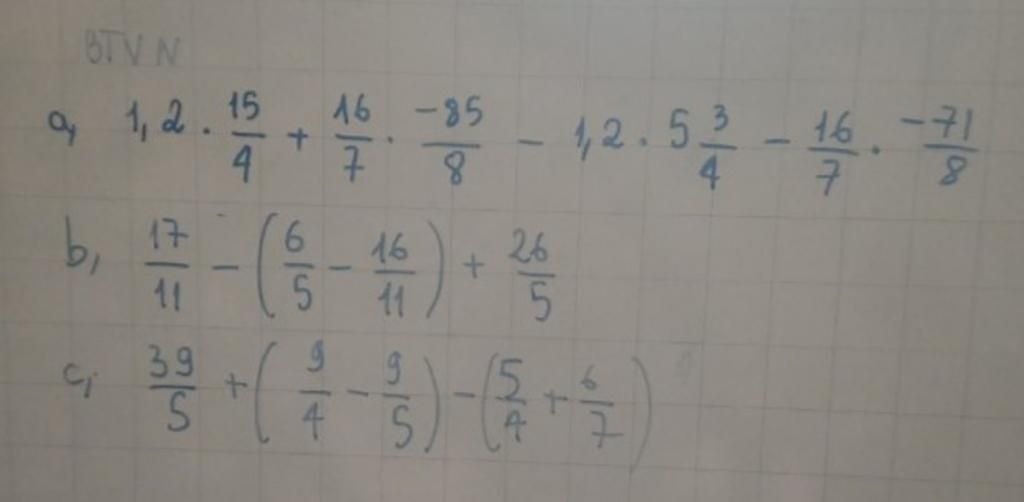 BTVN
a, 1,2 . 15/4 + 16/7 . -85/8 - 1,2 . 5 3/4 - 16/7 . -71/8
b, 17/11 - (6/5 - 16/11) + 26/5
c, 39/5 + (9/4 - 9/5) - (5/4 + 6/7)